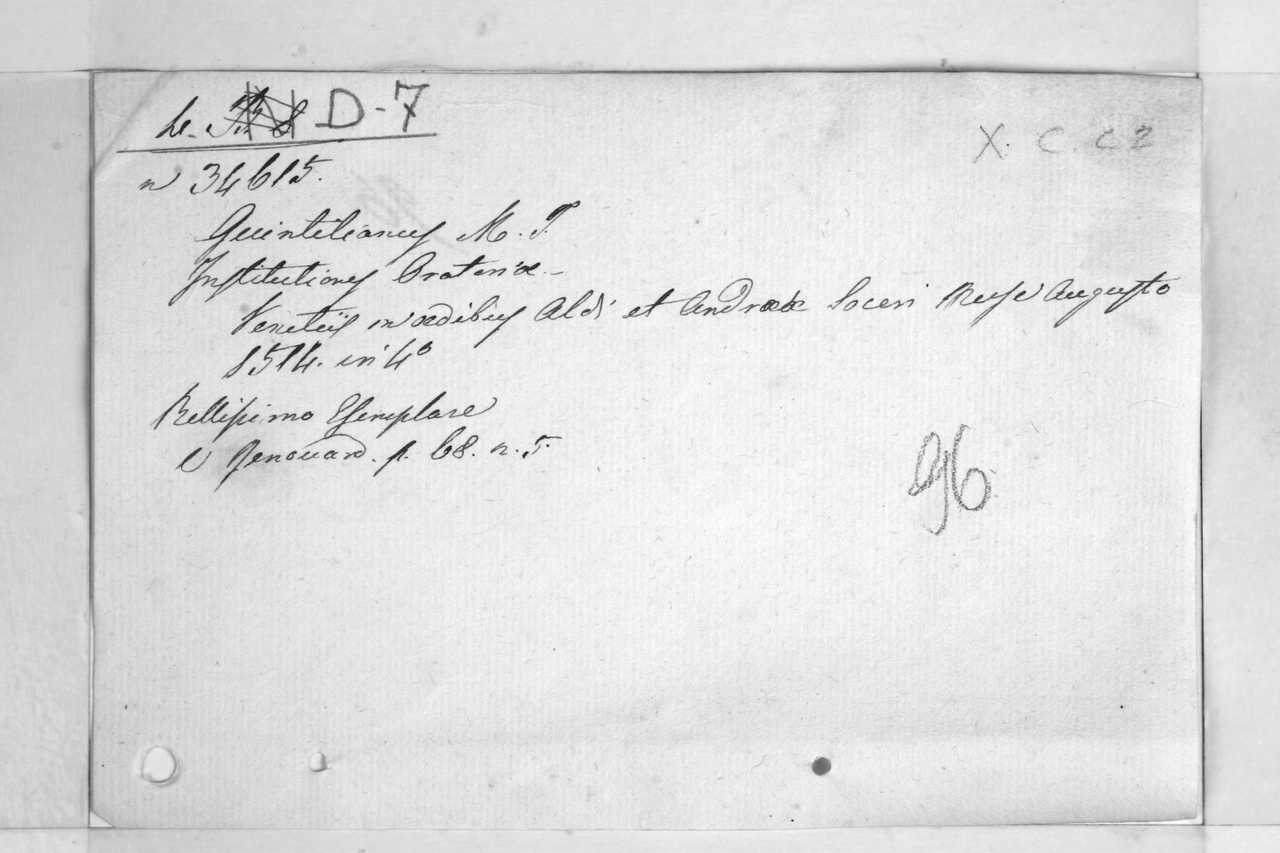 D-7
X. C. C 2
n 34615.
Quintilianus M. F.
Institutiones Oratoriæ
Venetiis in ædibus Aldi et Andreæ Soceri Mense Augusto
1514. in 4º
Bellissimo Esemplare
V Renouard. p. 68. n. 5.
96